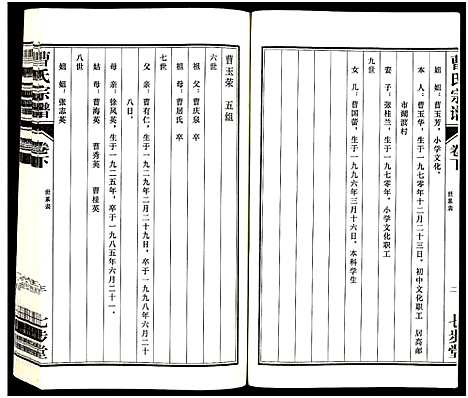 曹氏宗谱
卷下
世系表
二
七步堂
姐姐：曹玉芳，小学文化。
本人：曹玉华，生于一九七零年十二月二十三日，初中文化职工 居高邮
市湖滨村
九世
妻子：张桂兰，生于一九七零年，小学文化职工
女儿：曹国蕾，生于一九九六年三月十六日，本科学生
曹玉荣 五组
六世
祖父：曹庆泉 卒
祖母：曹居氏 卒
七世
父亲：曹有仁，生于一九二九年二月二十九日，卒于一九九八年六月二十
八日。
母亲：徐凤英，生于一九二五年，卒于一九八五年六月二十一。
姑姑：曹海英 曹秀英 曹桂英
八世
姐姐：张志英
曹氏宗谱
卷下
世系表
七步堂